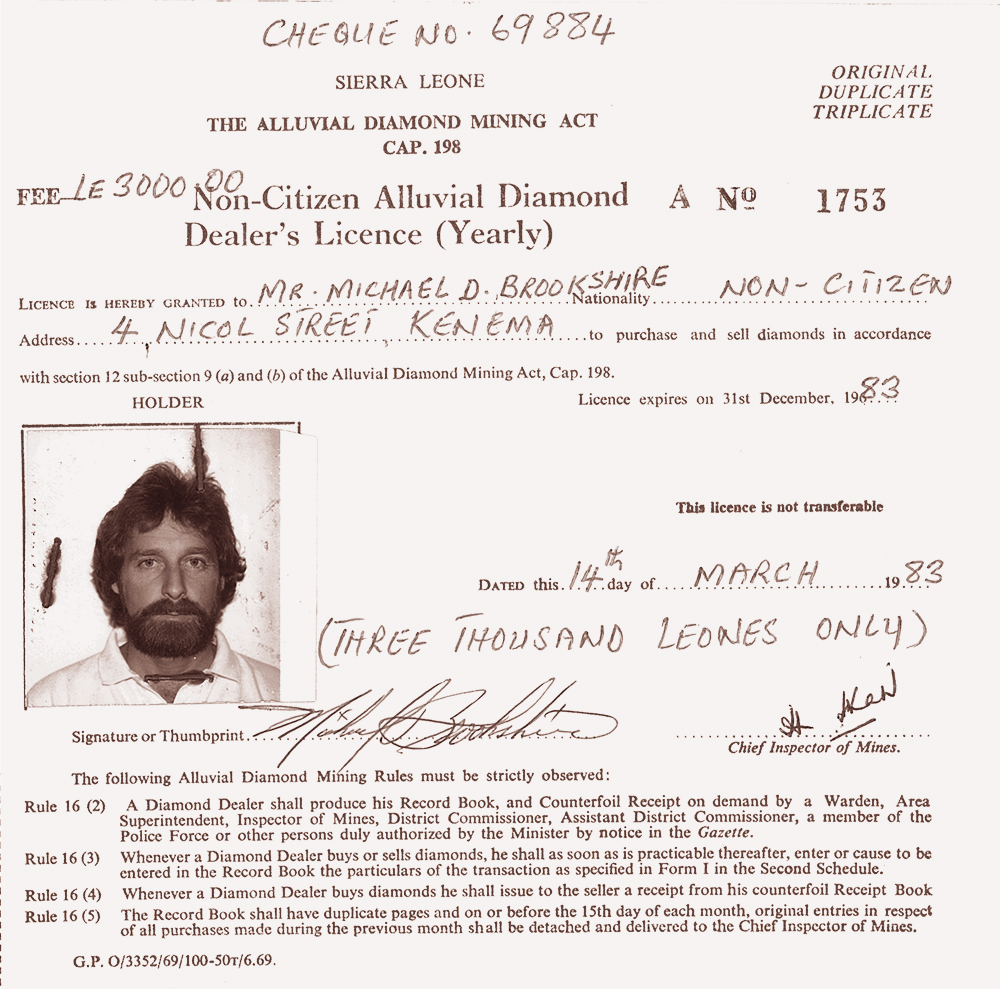 CHEQUE NO. 69884
SIERRA LEONE
ORIGINAL
DUPLICATE
TRIPLICATE
THE ALLUVIAL DIAMOND MINING ACT
CAP. 198
FEE LE 3000.00 Non-Citizen Alluvial Diamond A No 1753
Dealer's Licence (Yearly)
LICENCE IS HEREBY GRANTED to MR. MICHAEL D. BROOKSHIRE Nationality NON-CITIZEN
Address 4, NICOL STREET, KENEMA to purchase and sell diamonds in accordance
with section 12 sub-section 9 (a) and (b) of the Alluvial Diamond Mining Act, Cap. 198.
HOLDER
Licence expires on 31st December, 1983
This licence is not transferable
DATED this 14th day of MARCH 1983
(THREE THOUSAND LEONES ONLY)
Signature or Thumbprint Michael D Brookshire
Chief Inspector of Mines.
The following Alluvial Diamond Mining Rules must be strictly observed:
Rule 16 (2) A Diamond Dealer shall produce his Record Book, and Counterfoil Receipt on demand by a Warden, Area
Superintendent, Inspector of Mines, District Commissioner, Assistant District Commissioner, a member of the
Police Force or other persons duly authorized by the Minister by notice in the Gazette.
Rule 16 (3) Whenever a Diamond Dealer buys or sells diamonds, he shall as soon as is practicable thereafter, enter or cause to be
entered in the Record Book the particulars of the transaction as specified in Form I in the Second Schedule.
Rule 16 (4) Whenever a Diamond Dealer buys diamonds he shall issue to the seller a receipt from his counterfoil Receipt Book
Rule 16 (5) The Record Book shall have duplicate pages and on or before the 15th day of each month, original entries in respect
of all purchases made during the previous month shall be detached and delivered to the Chief Inspector of Mines.
G.P. O/3352/69/100-50T/6.69.